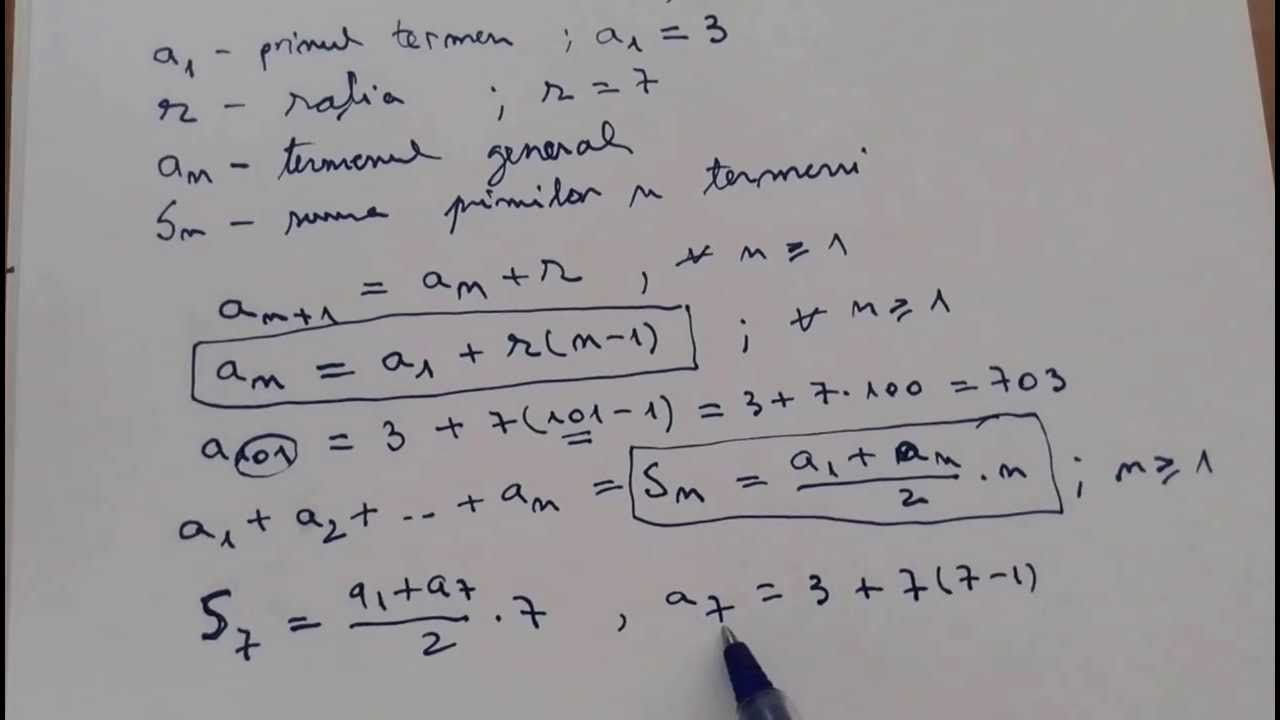 a₁ - primul termen ; a₁ = 3
r - rația ; r = 7
aₙ - termenul general
Sₙ - suma primilor n termeni
aₙ₊₁ = aₙ + r , ∀ n ≥ 1
aₙ = a₁ + r(n-1) ; ∀ n ≥ 1
a₁₀₁ = 3 + 7(101-1) = 3 + 7·100 = 703
a₁ + a₂ + ... + aₙ = Sₙ = (a₁ + aₙ)/2 · n ; n ≥ 1
S₇ = (a₁+a₇)/2 · 7 , a₇ = 3 + 7(7-1)